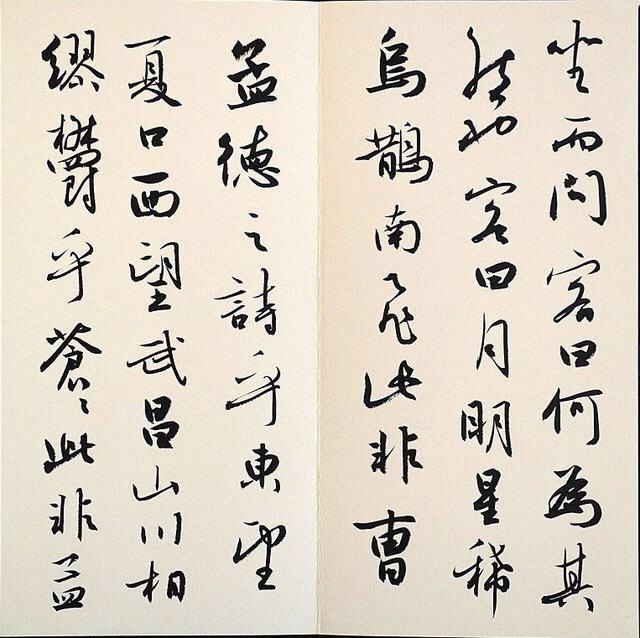 坐而問客曰何為其
然也客曰月明星稀
烏鵲南飛此非曹
孟德之詩乎東望
夏口西望武昌山川相
繆鬱乎蒼〻此非孟